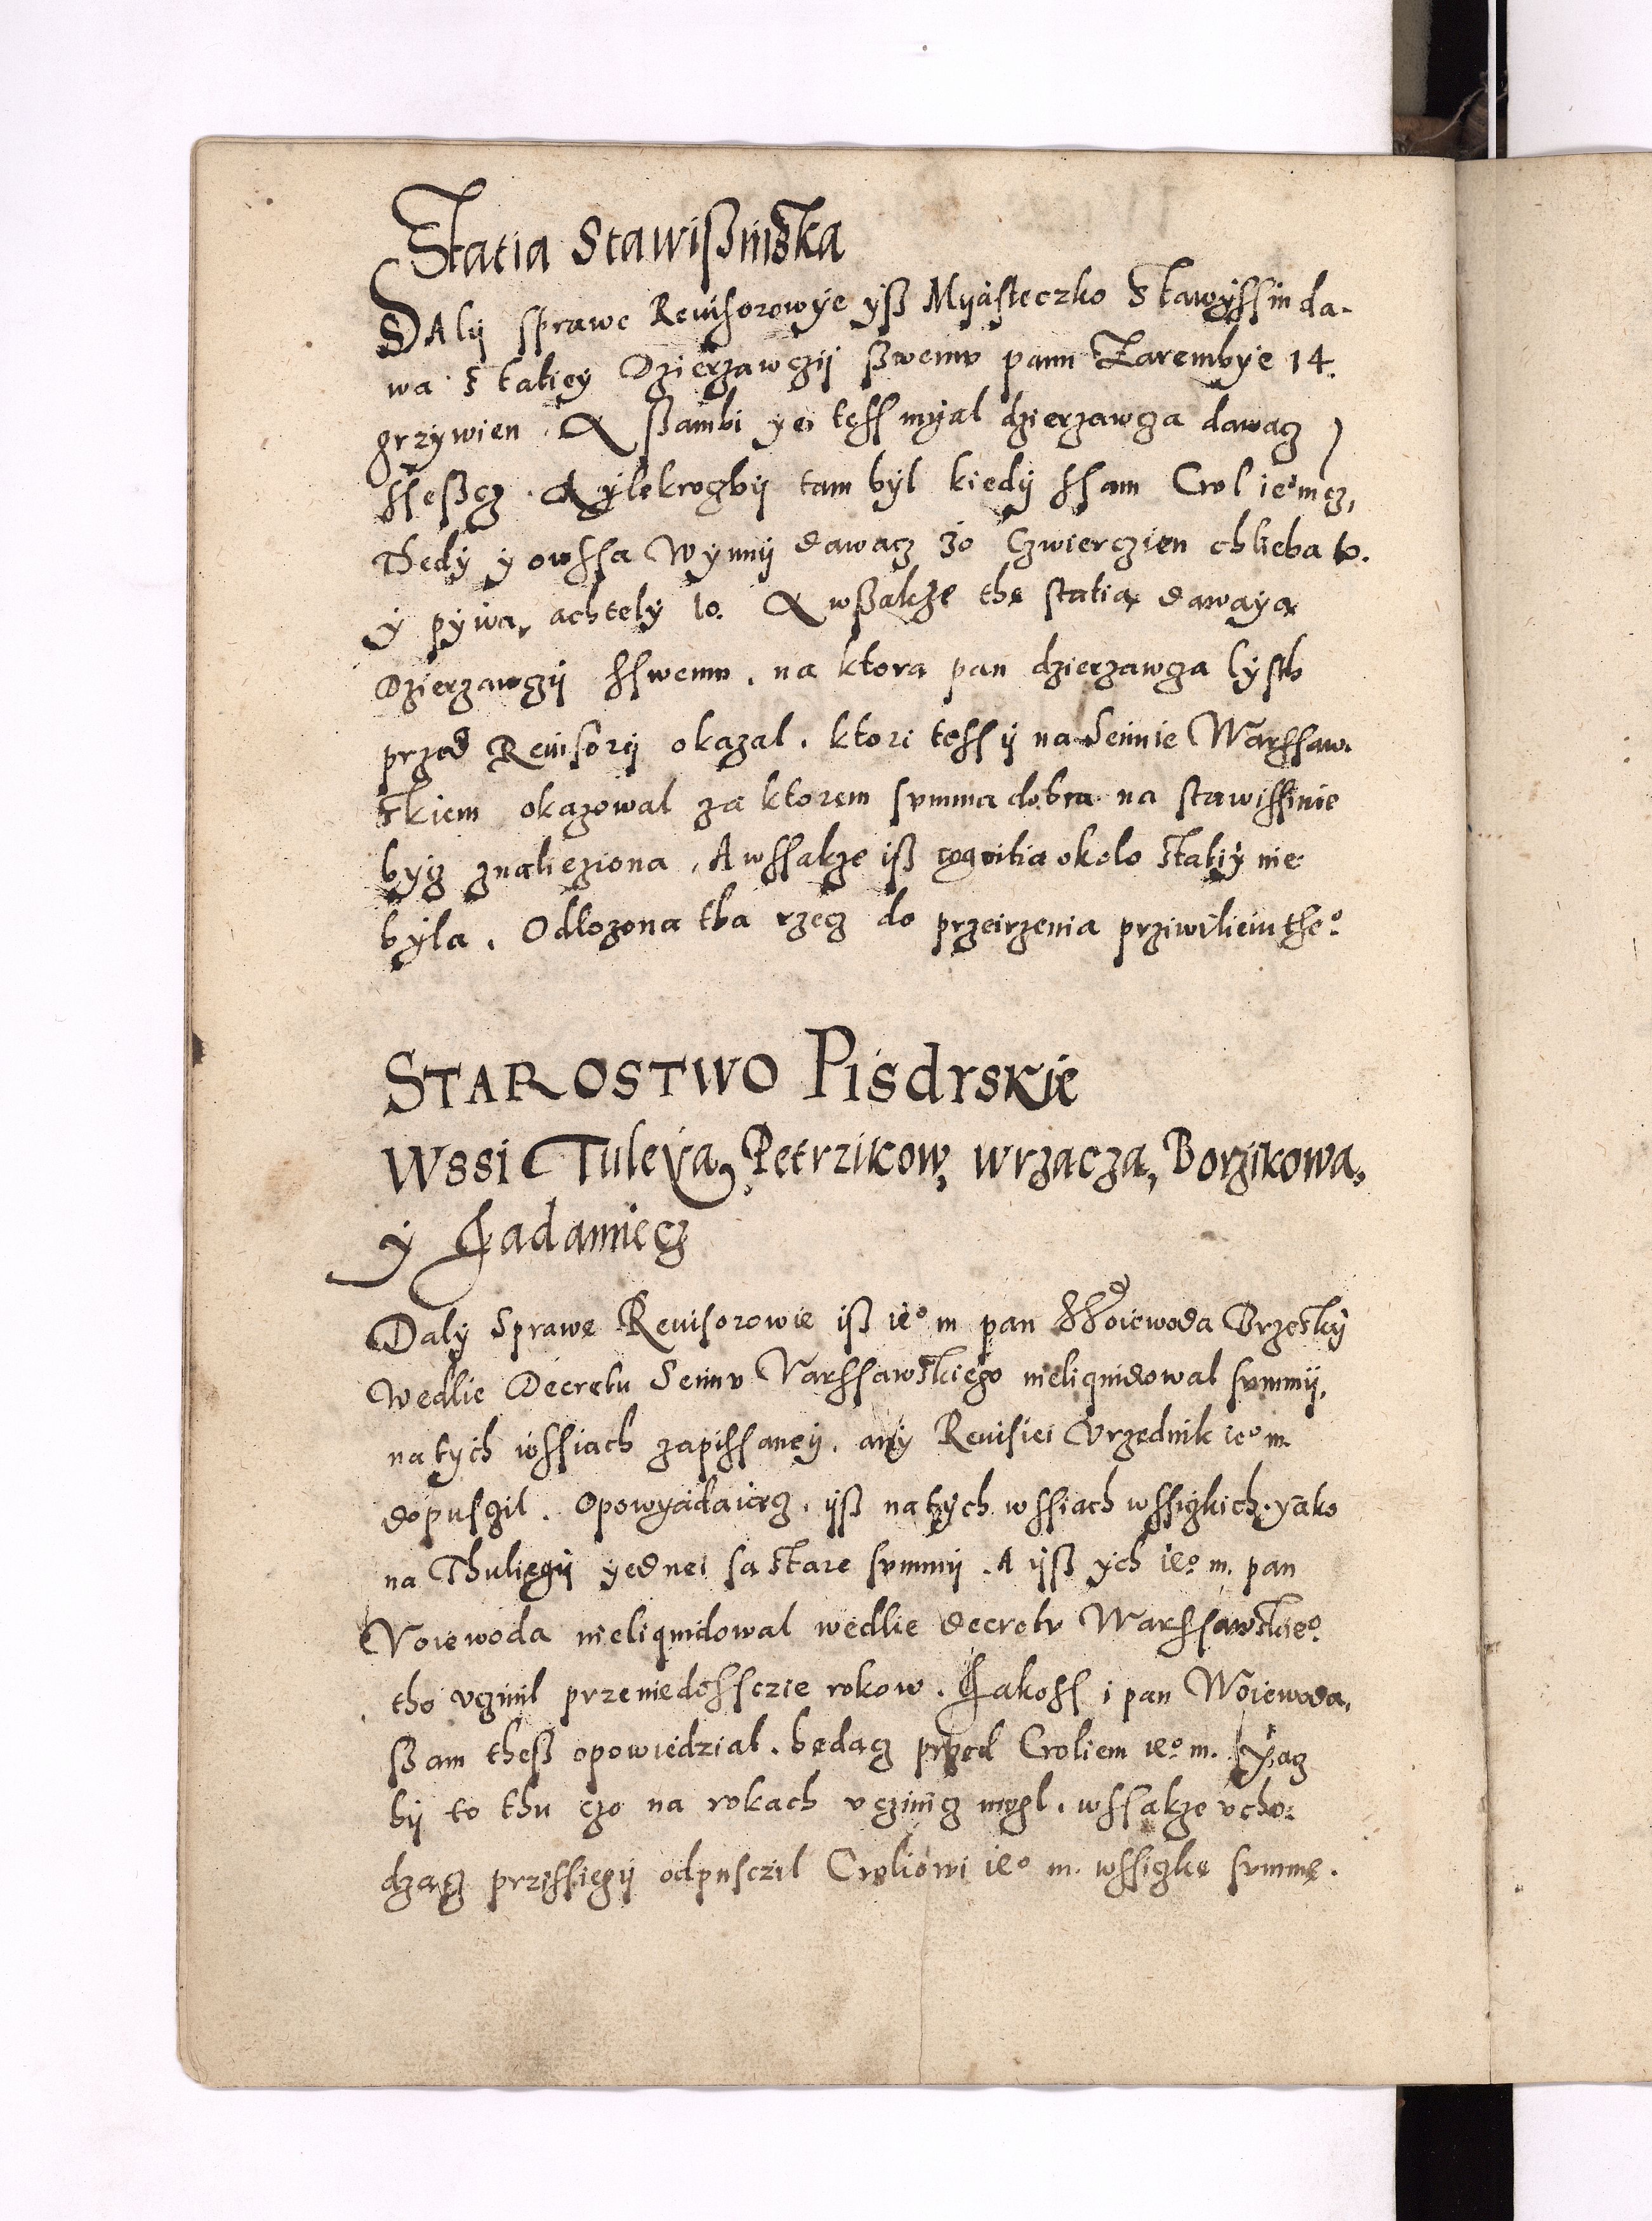 Statia Stawißinska
DAly sprawe Reuisorowye yß Myasteczko Stawyssin da-
wa Statiey Dzierzawczy ßwemv panu Zarembye 14.
grzywien. A ßambi yei tess myal dzierzawcza dawacz
ssesscz. A ylekroczby tam byl kiedy ssam Crol ie° mcz,
Thedy y owssa wynny dawacz 30 czwierczien chlieba 10.
y pywa achtely 10. A wßakze the statią dawaya
Dzierzawczy sswemv. na ktora pan dzierzawcza lysth
przed Reuisory okazal. ktori tess y na Seimie Warssaw-
skiem okazowal za ktorem svmma dobra na stawissinie
bycz znalieziona, A wssakze iß cognitia okolo statiy nie
byla. Odlozona tha rzecz do przeirzenia prziwilieiu the°:
STAROSTWO Pisdrskie
Wssi Tulexa, Petrzikow, wrzacza, Borzikowa,
y Jadamiecz
Daly Sprawe Reuisorowie iß ie° m pan Woiewoda Brzesky
wedlie Decretu Seimv Varssawskiego nieliquidowal svmmy,
na tych wssiach zapissaney. any Reuisiei Vrzednik ie° m.
dopusczil. Opowyadaiącz. yß na tych wssiach wssiczkich. yako
na Thuliczy yednei sa stare svmmy. A yß ych ie° m. pan
Voiewoda nieliquidowal wedlie decretv Warssawskie°.
tho vczinil przeniedossczie rokow. Jakoss i pan Woiewoda,
ßam theß opowiedzial. będącz przed Croliem ie° m. Yacz
by to thu czo na rokach vczinicz mogl. wssakze vcho-
dzącz przissięgy odpusczil Croliowi ie° m. wssiczke svmmę.